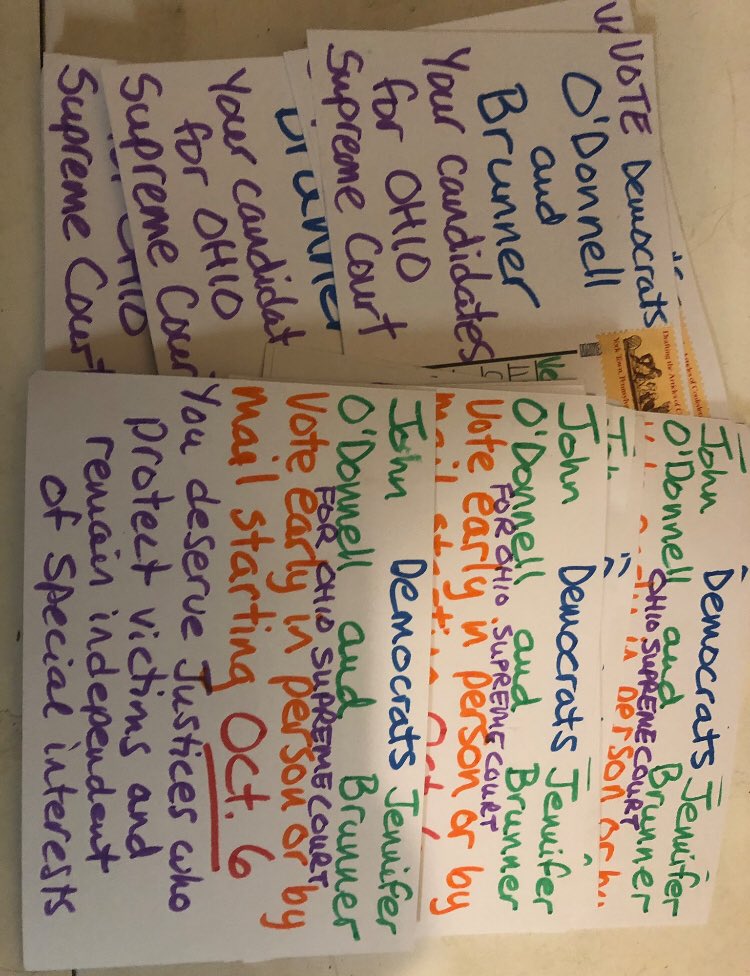 VOTE Democrats
O'Donnell
and
Brunner
Your candidates
for OHIO
Supreme Court
Brunner
Your candidat
for OHIO
Supreme Cour
OHIO
Supreme Court
Drafting the Articles of
York Town,
John Democrats Jennifer
O'Donnell and Brunner
OHIO SUPREME COURT
in person or
John Democrats Jennifer
O'Donnell and Brunner
FOR OHIO SUPREME COURT
Vote early in person or by
mail
John Democrats Jennifer
O'Donnell and Brunner
FOR OHIO SUPREME COURT
Vote early in person or by
mail starting Oct. 6
You deserve Justices who
protect victims and
remain independent
of special interests